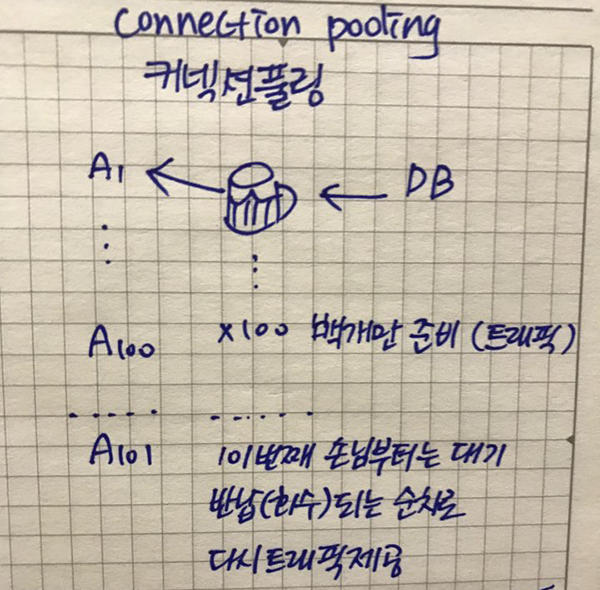 Connection pooling
커넥션풀링
A1 DB
A100 x100 백개만 준비 (트래픽)
A101 101번째 손님부터는 대기
반납(회수)되는 순차로
다시트래픽제공